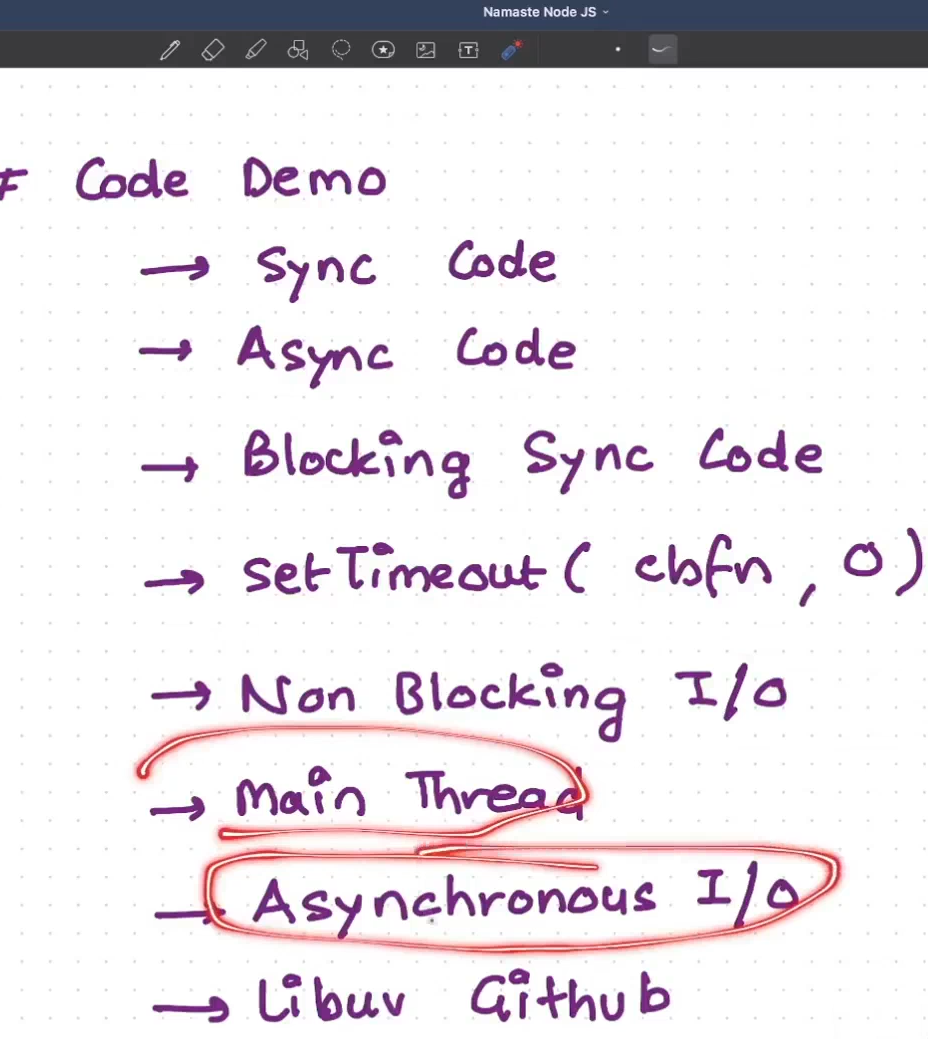 Namaste Node JS
# Code Demo
→ Sync Code
→ Async Code
→ Blocking Sync Code
→ setTimeout( cbfn , 0 )
→ Non Blocking I/O
→ Main Thread
→ Asynchronous I/O
→ Libuv Github